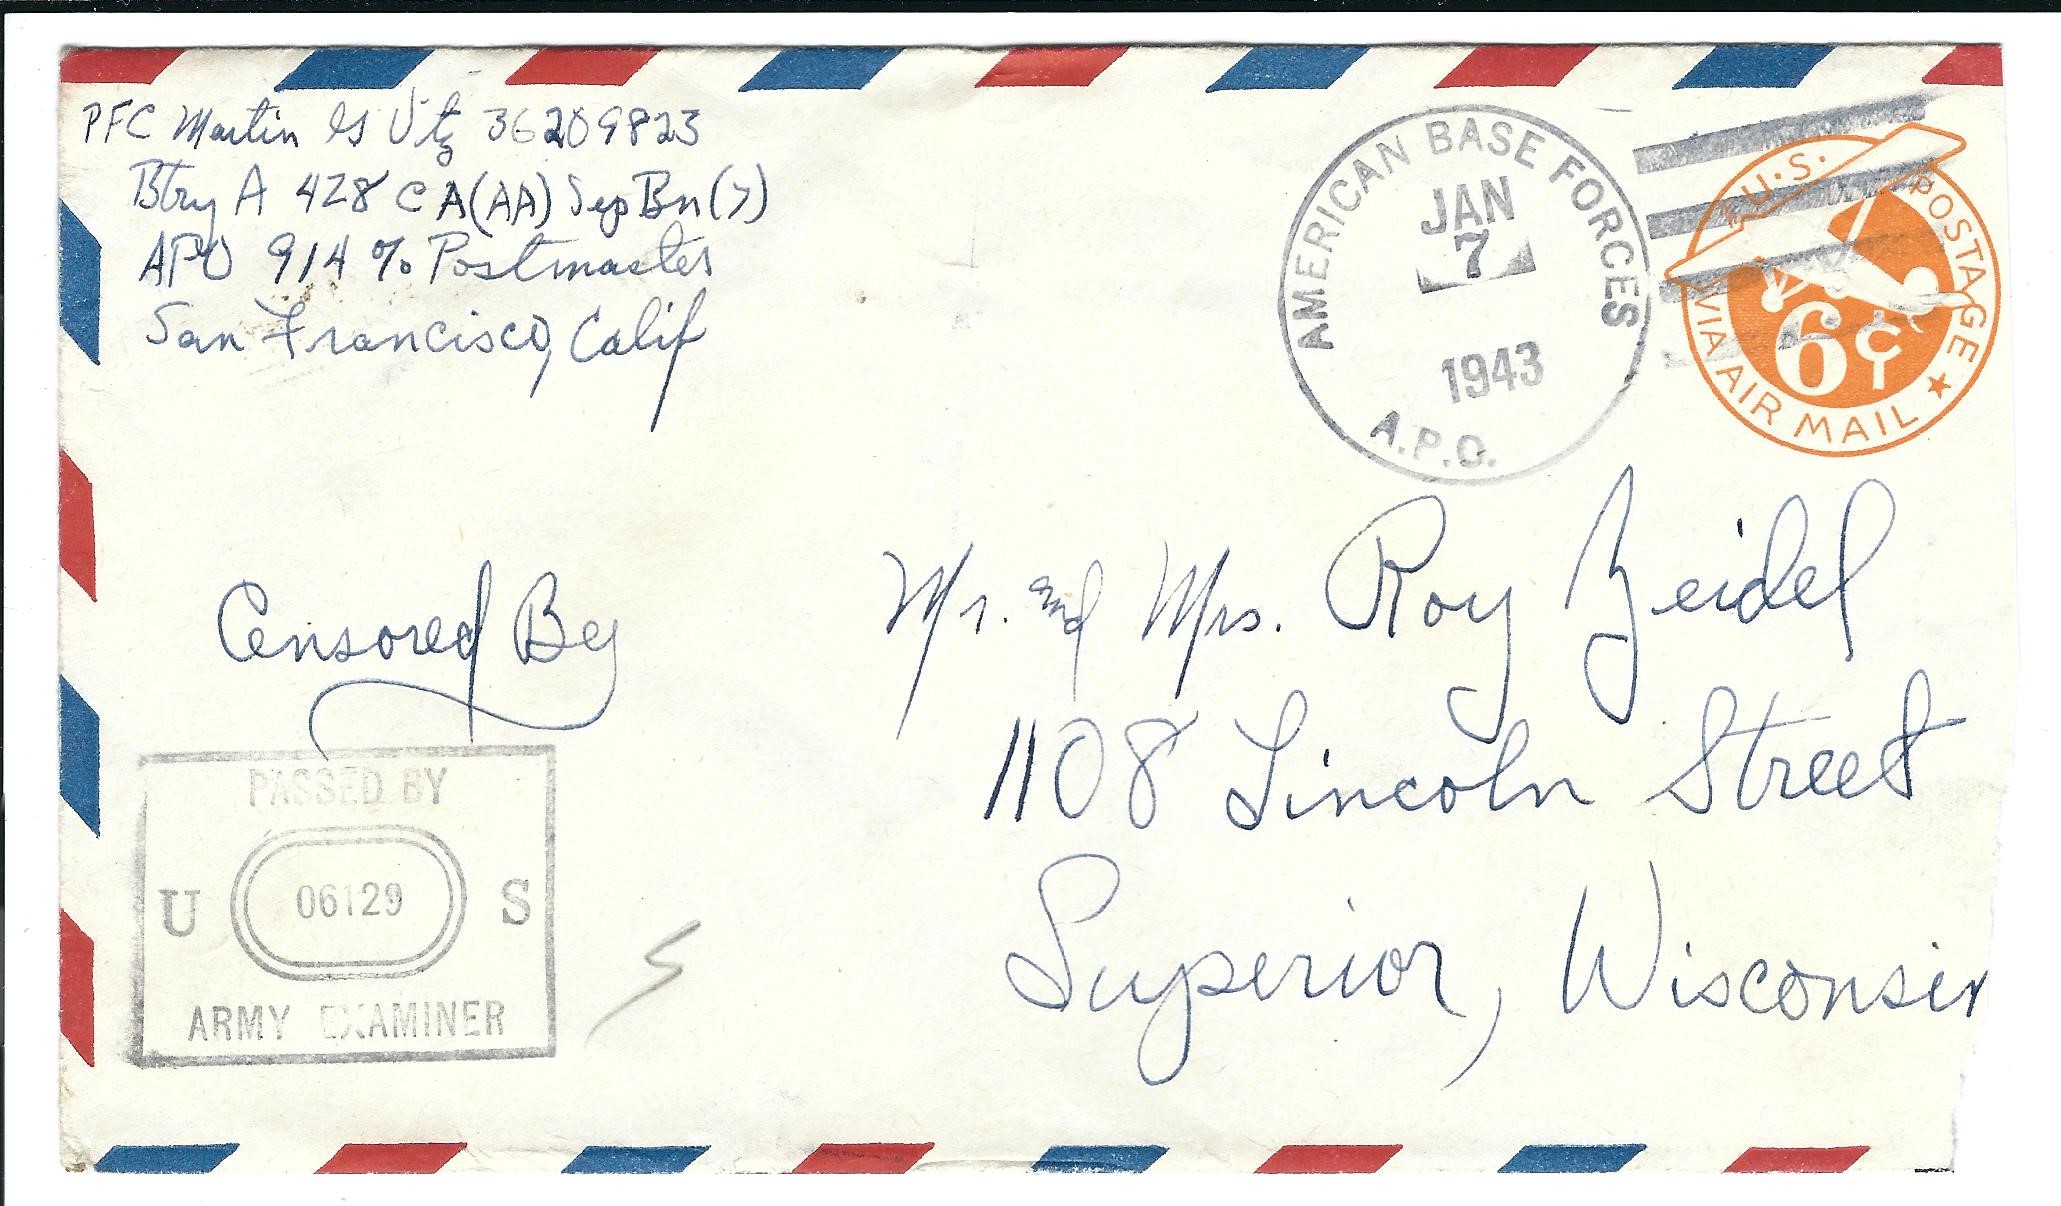 PFC Martin G Utz 36209823
Btry A 428 CA(AA) Sep Bn(S)
APO 914 % Postmaster
San Francisco, Calif
AMERICAN BASE FORCES
JAN
7
1943
A.P.O.
U.S. POSTAGE
6¢
VIA AIR MAIL
Censored By
Mr. and Mrs. Roy Zeidel
1108 Lincoln Street
Superior, Wisconsin
PASSED BY
U 06129 S
ARMY EXAMINER